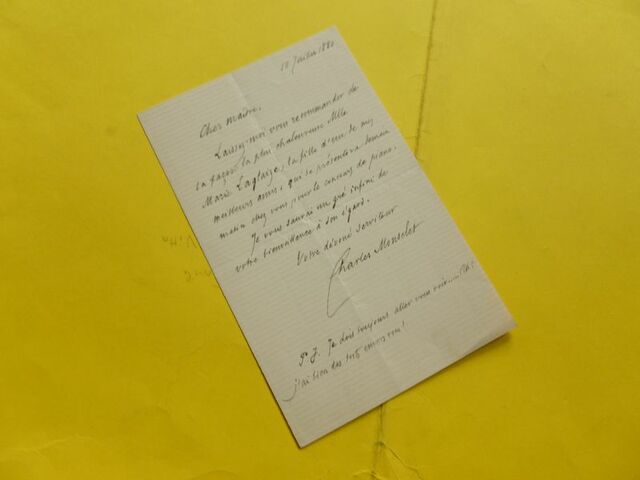 10 Juillet 1880
Cher maître,
Laissez-moi vous recommander de
la façon la plus chaleureuse Mlle
Marie Laglaize, la fille d'un de mes
meilleurs amis, qui se présentera demain
matin chez vous pour le concours de piano.
Je vous saurai un gré infini de
votre bienveillance à son égard.
Votre dévoué serviteur
Charles Monselet
P. S. Je dois toujours aller vous voir.....
j'ai bien des torts envers vous!